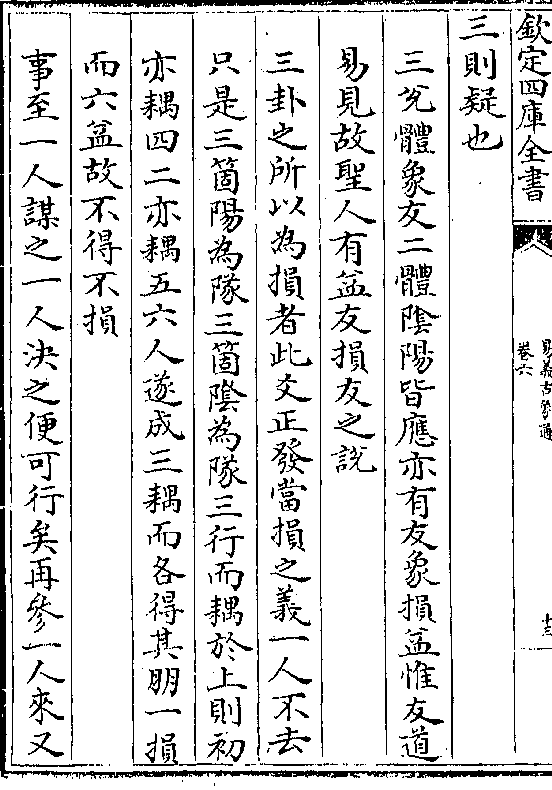 欽定四庫全書
易義古象通
卷六
十三
三則疑也
三兌體象友二體陰陽皆應亦有友象損益惟友道
易見故聖人有益友損友之說
三卦之所以為損者此爻正發當損之義一人不去
只是三箇陽為隊三箇陰為隊三行而耦於上則初
亦耦四二亦耦五六人遂成三耦而各得其朋一損
而六益故不得不損
事至一人謀之一人決之便可行矣再參一人來又